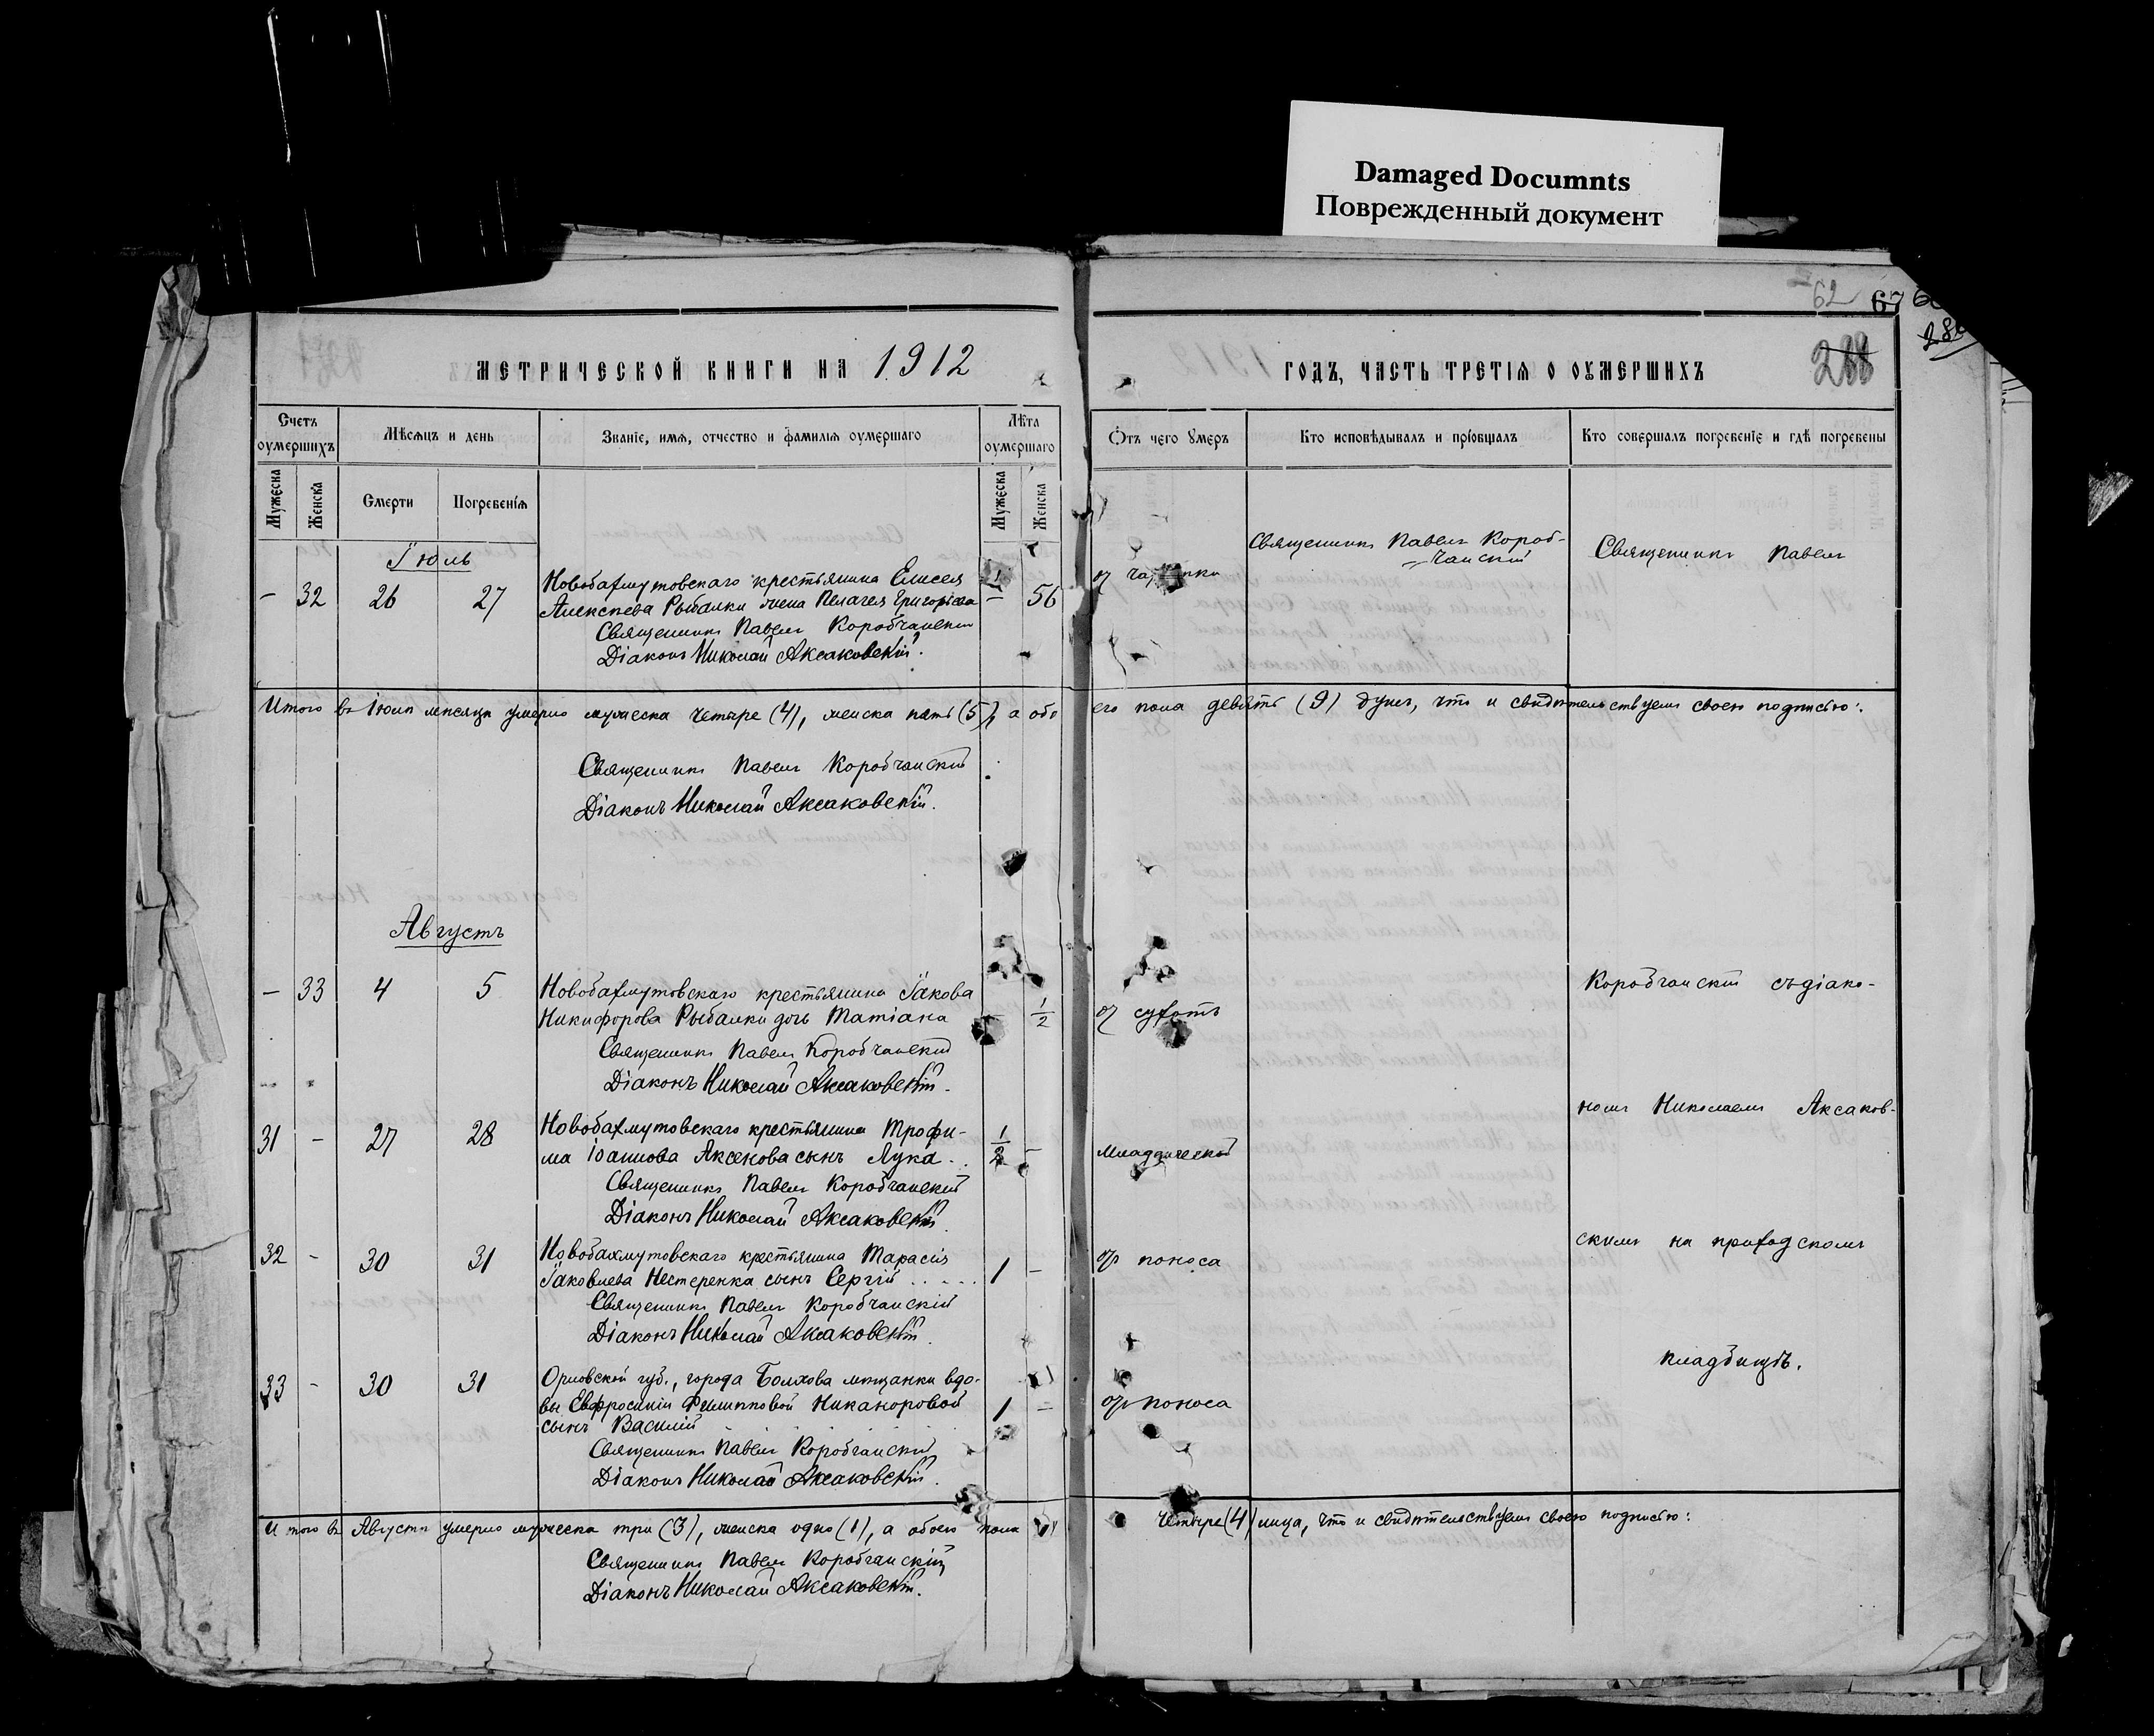 Damaged Documnts
Поврежденный документ
62 67
288
МЕТРИЧЕСКОЙ КНИГИ НА 1912
ГОДЪ, ЧАСТЬ ТРЕТІѦ О ОУМЕРШИХЪ
Счетъ оумершихъ
Мѣсѧцъ и день
Званіе, имѧ, отчество и фамиліѧ оумершаго
Лѣта оумершаго
Отъ чего умеръ
Кто исповѣдывалъ и пріобщалъ
Кто совершалъ погребеніе и гдѣ погребены
Мужеска
Женска
Смерти
Погребеніѧ
Мужеска
Женска
Іюль
– 32 26 27 Новобахмутовскаго крестьянина Елисея
Алексѣева Рыбалки жена Пелагея Григоріева – 56
Священникъ Павелъ Коробчанскій
Діаконъ Николай Аксаковскій.
Священникъ Павелъ Короб-
чанскій
Священникъ Павелъ
Итого въ Іюлѣ мѣсяцѣ умерло мужеска четыре (4), женска пять (5), а обо
его пола девять (9) душъ, что и свидѣтельствуемъ своею подписью:
Священникъ Павелъ Коробчанскій
Діаконъ Николай Аксаковскій.
Августъ
– 33 4 5 Новобахмутовскаго крестьянина Іакова
Никифорова Рыбалки дочь Татіана 1/2 от сухотъ
Священникъ Павелъ Коробчанскій
Діаконъ Николай Аксаковскій.
Коробчанскій съ діако-
31 – 27 28 Новобахмутовскаго крестьянина Трофи-
ма Іоаннова Аксенова сынъ Лука 1/2 – младенческой
Священникъ Павелъ Коробчанскій
Діаконъ Николай Аксаковскій.
номъ Николаемъ Аксаков-
32 – 30 31 Новобахмутовскаго крестьянина Тарасія
Іаковлева Нестеренка сынъ Сергій . . . . . 1 – от поноса
Священникъ Павелъ Коробчанскій
Діаконъ Николай Аксаковскій.
скимъ на приходскомъ
33 – 30 31 Орловской губ., города Болхова мѣщанки вдо-
вы Евфросиніи Филипповой Никаноровой 1 – от поноса
сынъ Василій
Священникъ Павелъ Коробчанскій
Діаконъ Николай Аксаковскій.
кладбищѣ.
Итого въ Августѣ умерло мужеска три (3), женска одно (1), а обоего пола
четыре (4) лица, что и свидѣтельствуемъ своею подписью:
Священникъ Павелъ Коробчанскій
Діаконъ Николай Аксаковскій.